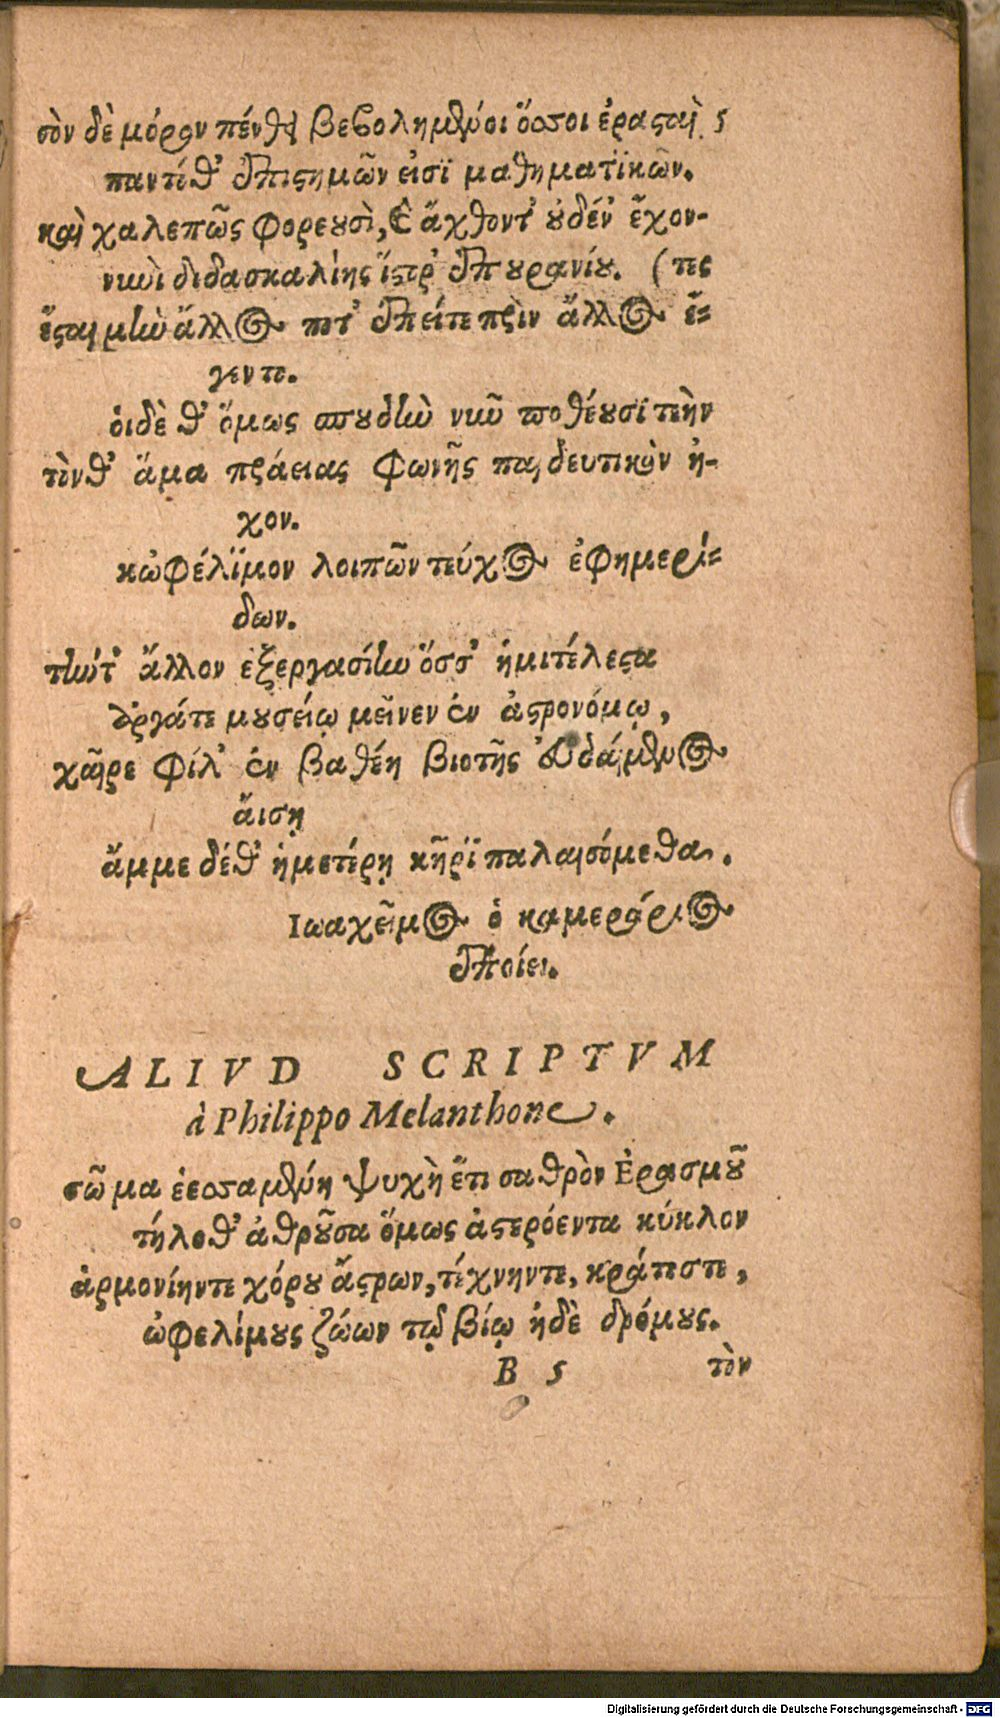 σὸν δὲ μόρον πένθει βεβολημένοι ὅσσοι ἐρασταὶ ς
παντίθ' ἐπιστημῶν εἰσὶ μαθηματικῶν.
καὶ χαλεπῶς φορευσὶ, καὶ ἄχθοντ' οὐδέν' ἔχον-
νῦνι διδασκαλίης ἵστρ' ἐπουρανίου. (τες
ἔσται μὲν ἄλλος ποτ' ἐπείτε πρὶν ἄλλος ἔ-
γεντο.
οἱδὲ θ' ὅμως σπουδὴν νῦν ποθέουσι τεὴν
τὸνθ' ἅμα πράειας φωνῆς παιδευτικὸν ἠ-
χον.
κὠφέλιμον λοιπῶν τεύχος ἐφημερί-
δων.
τήντ' ἄλλον ἐξεργασίην ὅσσ' ἡμιτέλεστα
ἐργάτε μουσείῳ μεῖνεν ἐν ἀστρονόμῳ,
χαῖρε φίλ' ἐν βαθέῃ βιοτῆς εὐδαίμονος
αἴσῃ
ἄμμε δέθ' ἡμετέρῃ κῆρι παλαισόμεθα.
Ιωαχεῖμος ὁ καμεράριος
ἐποίει.
ALIVD SCRIPTVM
à Philippo Melanthone.
σῶμα ἐεσσαμένη ψυχὴ ἔτι σαθρὸν Ἐρασμοῦ
τήλοθ' ἀθροῦσα ὅμως ἀστερόεντα κύκλον
ἁρμονίηντε χόρου ἄστρων, τέχνηντε, κράτεστε,
ὠφελίμους ζώων τῷ βίῳ ἠδὲ δρόμους.
B 5 τὸν
Digitalisierung gefördert durch die Deutsche Forschungsgemeinschaft - DFG